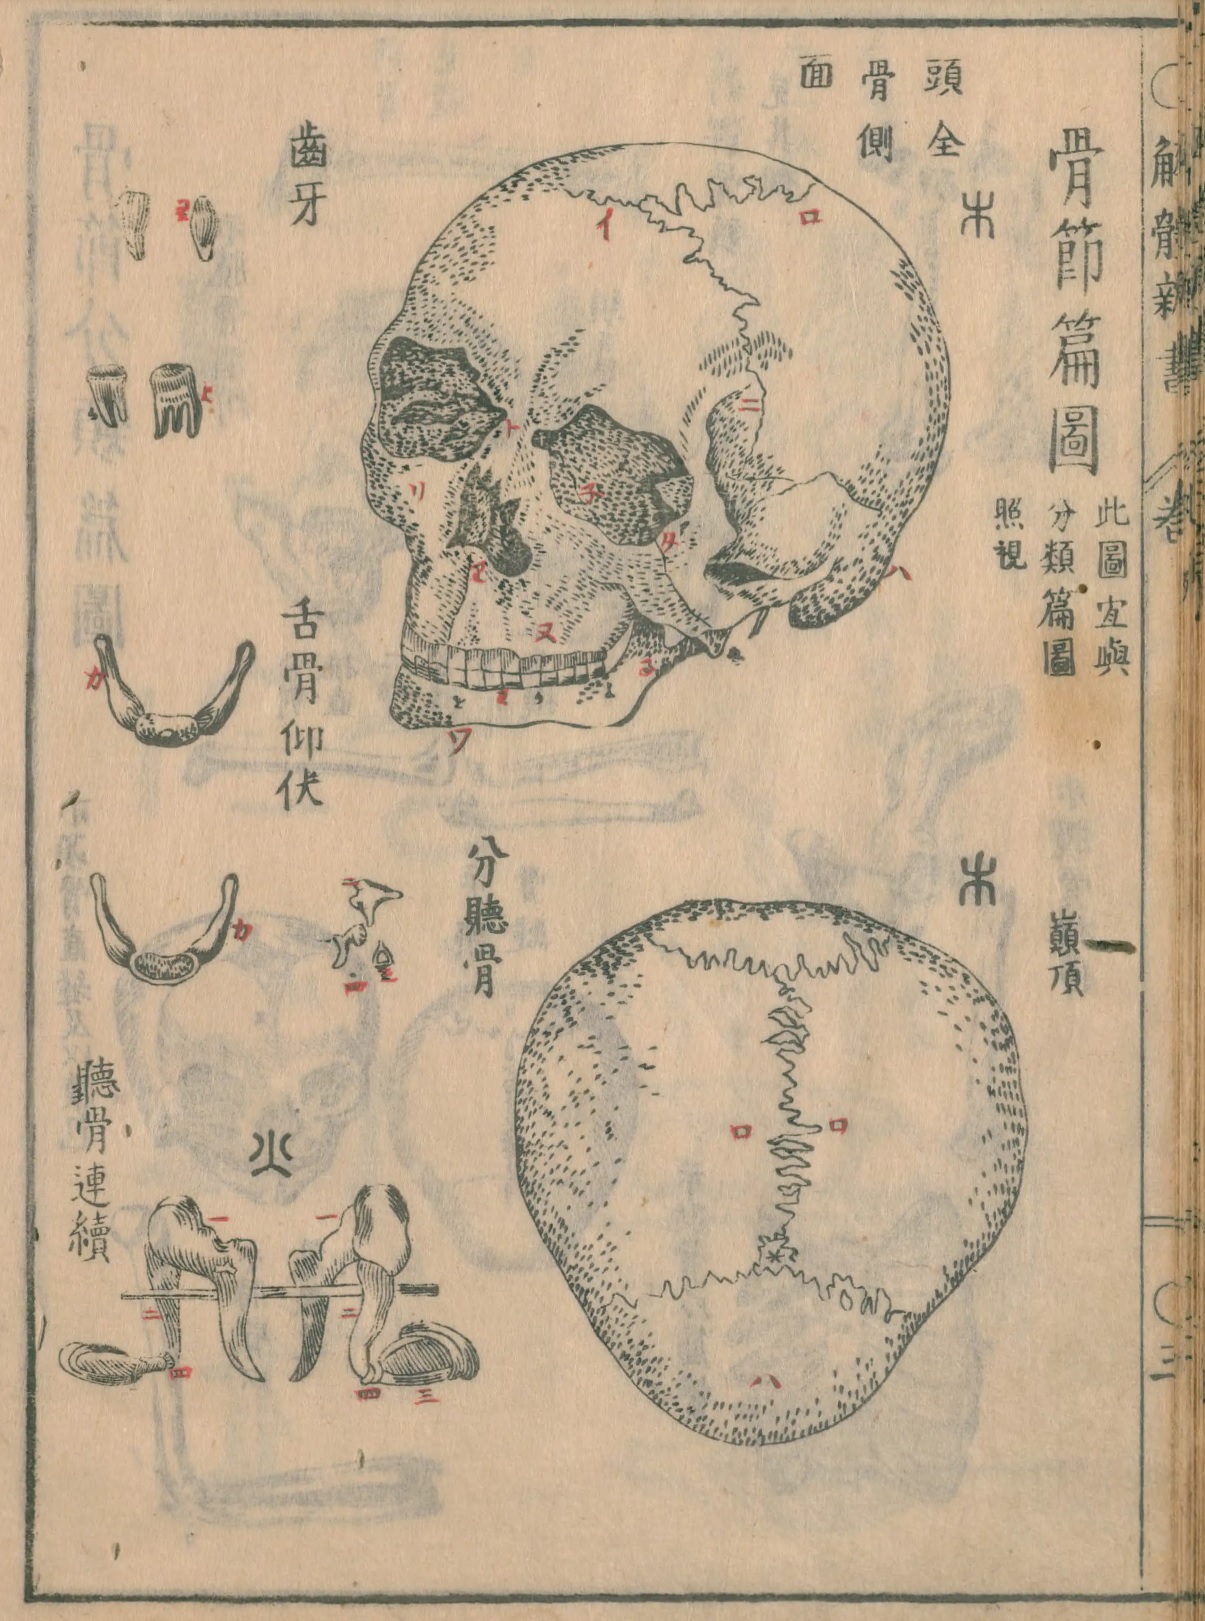 解體新書
卷
三
骨節篇圖
此圖宜與
分類篇圖
照視
木
頭全
骨側
面
イ
ロ
ニ
ト
チ
リ
タ
ハ
ヌ
る
ワ
齒牙
舌骨仰伏
カ
カ
木
巓頂
ロ
ロ
ハ
分聽骨
二
三
四
聽骨連續
火
一
一
二
二
四
四
三